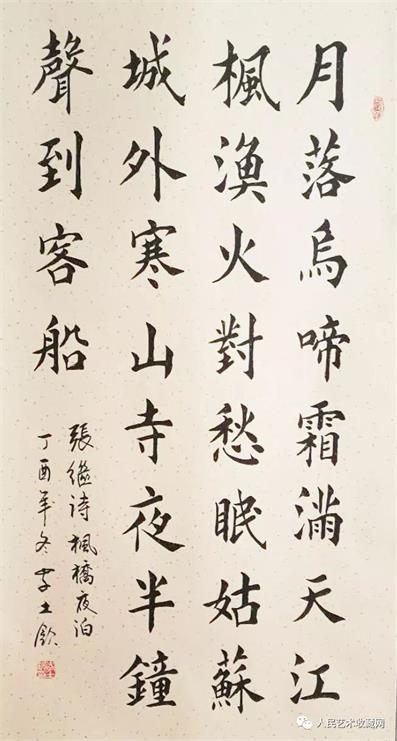 月落烏啼霜滿天江
楓漁火對愁眠姑蘇
城外寒山寺夜半鐘
聲到客船
張繼诗楓橋夜泊
丁酉年冬
人民艺术收藏网